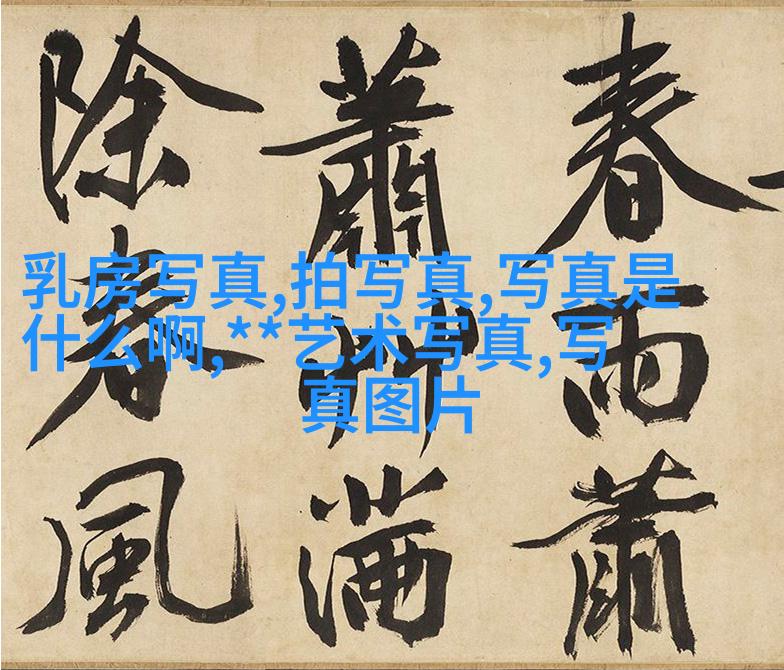 春雨蕭
蕭艸滿
除春風
乳房写真,拍写真,写真是
什么啊,**艺术写真,写
真图片